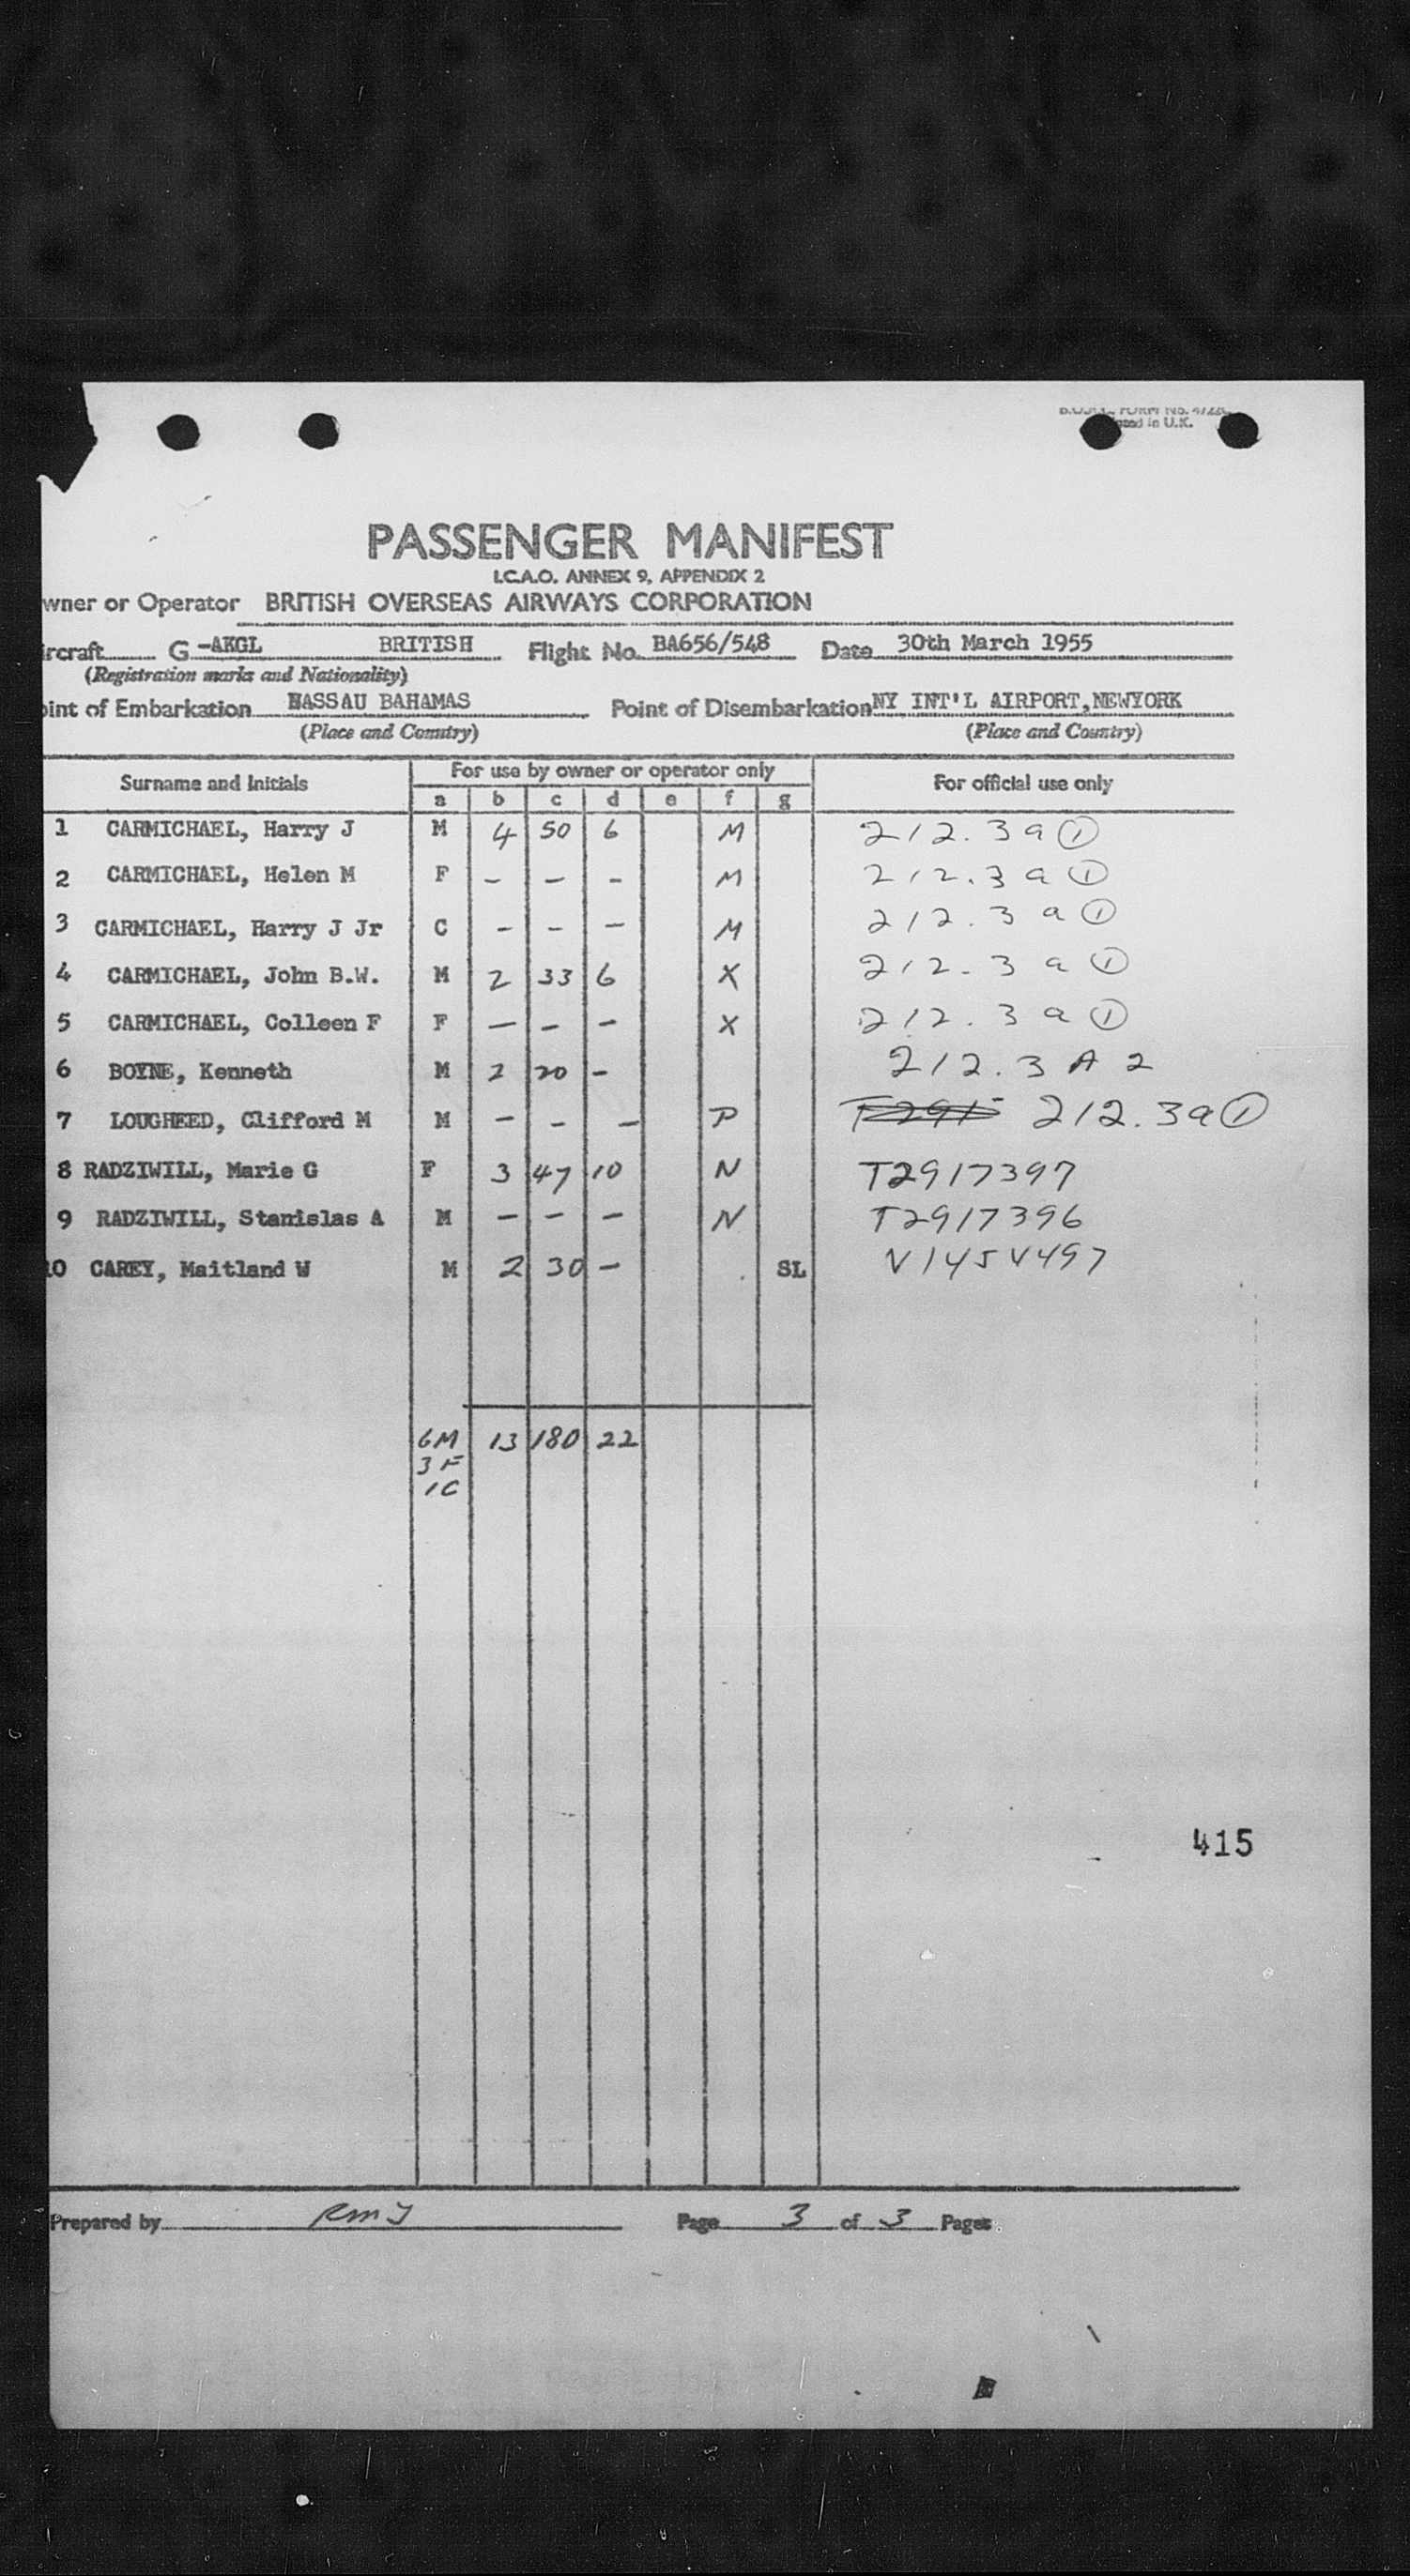 PASSENGER MANIFEST
I.C.A.O. ANNEX 9, APPENDIX 2
wner or Operator BRITISH OVERSEAS AIRWAYS CORPORATION
ircraft G-AKGL BRITISH Flight No. BA656/548 Date 30th March 1955
(Registration marks and Nationality)
oint of Embarkation NASSAU BAHAMAS Point of Disembarkation NY INT'L AIRPORT, NEWYORK
(Place and Country) (Place and Country)
Surname and Initials For use by owner or operator only For official use only
a b c d e f g
1 CARMICHAEL, Harry J M 4 50 6 M 212.3a①
2 CARMICHAEL, Helen M F - - - M 212.3a①
3 CARMICHAEL, Harry J Jr C - - - M 212.3a①
4 CARMICHAEL, John B.W. M 2 33 6 X 212.3a①
5 CARMICHAEL, Colleen F F - - - X 212.3a①
6 BOYNE, Kenneth M 2 20 - 212.3A2
7 LOUGHEED, Clifford M M - - - P 212.3a①
8 RADZIWILL, Marie G F 3 47 10 N T2917397
9 RADZIWILL, Stanislas A M - - - N T2917396
10 CAREY, Maitland W M 2 30 - SL
6M 13 180 22
3F
1C
415
Prepared by Page 3 of 3 Pages.